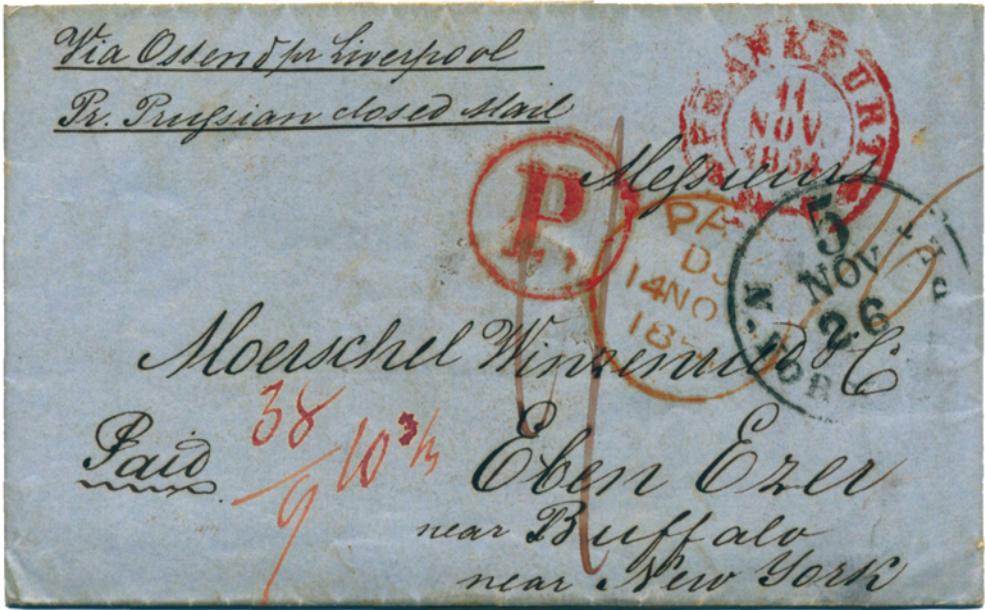 Via Ostend pr Liverpool
Pr. Prussian closed Mail
FRANKFURT
11
NOV.
P.
Messieurs
PA
14 NO
18
5
NOV
26
N. YOR
PKT
Moerschel Winzenried & C
38
9
10
3
Paid
Eben Ezer
near Buffalo
near New York